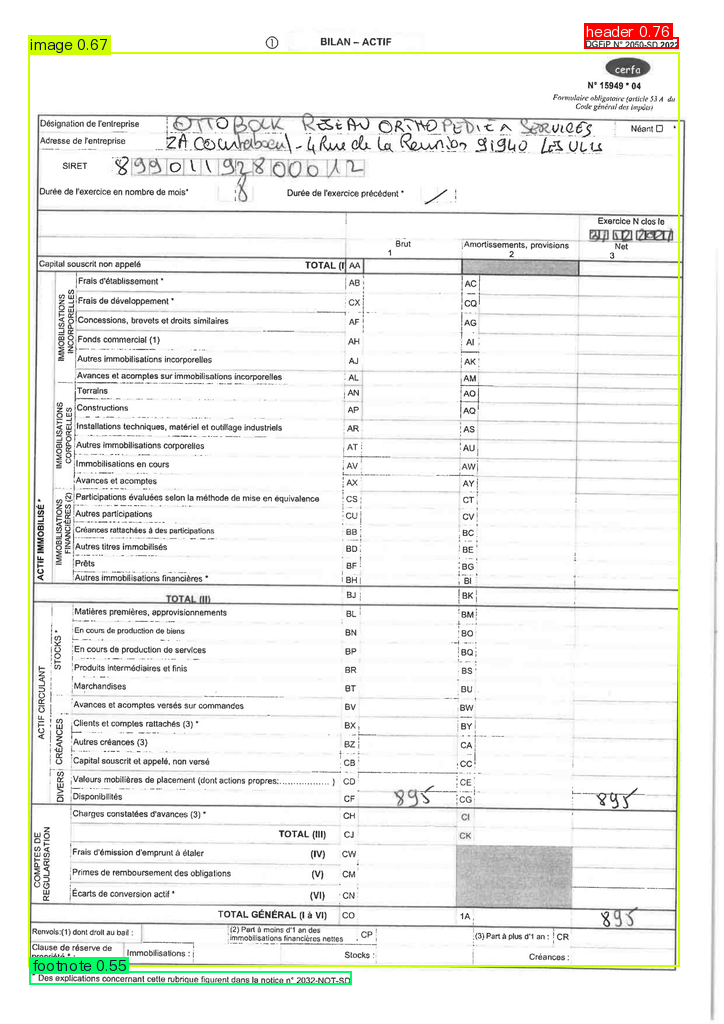 image 0.67
header 0.76
① BILAN – ACTIF
DGFiP N° 2050-SD 2022
cerfa
N° 15949 * 04
Formulaire obligatoire (article 53 A du
Code général des impôts)
Désignation de l'entreprise OTTOBOCK RESEAU ORTHOPEDIE SERVICES Néant ☐ *
Adresse de l'entreprise ZA Courtaboeuf - 4 Rue de la Reunion 91940 LES ULIS
SIRET 89901192800012
Durée de l'exercice en nombre de mois* 8 Durée de l'exercice précédent * /
Exercice N clos le
31122021
Brut Amortissements, provisions Net
1 2 3
Capital souscrit non appelé TOTAL (I AA
ACTIF IMMOBILISÉ *
IMMOBILISATIONS INCORPORELLES
Frais d'établissement * AB AC
Frais de développement * CX CQ
Concessions, brevets et droits similaires AF AG
Fonds commercial (1) AH AI
Autres immobilisations incorporelles AJ AK
Avances et acomptes sur immobilisations incorporelles AL AM
IMMOBILISATIONS CORPORELLES
Terrains AN AO
Constructions AP AQ
Installations techniques, matériel et outillage industriels AR AS
Autres immobilisations corporelles AT AU
Immobilisations en cours AV AW
Avances et acomptes AX AY
IMMOBILISATIONS FINANCIÈRES (2)
Participations évaluées selon la méthode de mise en équivalence CS CT
Autres participations CU CV
Créances rattachées à des participations BB BC
Autres titres immobilisés BD BE
Prêts BF BG
Autres immobilisations financières * BH BI
TOTAL (II) BJ BK
ACTIF CIRCULANT
STOCKS *
Matières premières, approvisionnements BL BM
En cours de production de biens BN BO
En cours de production de services BP BQ
Produits intermédiaires et finis BR BS
Marchandises BT BU
Avances et acomptes versés sur commandes BV BW
CRÉANCES
Clients et comptes rattachés (3) * BX BY
Autres créances (3) BZ CA
Capital souscrit et appelé, non versé CB CC
DIVERS
Valeurs mobilières de placement (dont actions propres:.................. ) CD CE
Disponibilités CF 895 CG 895
COMPTES DE REGULARISATION
Charges constatées d'avances (3) * CH CI
TOTAL (III) CJ CK
Frais d'émission d'emprunt à étaler (IV) CW
Primes de remboursement des obligations (V) CM
Écarts de conversion actif * (VI) CN
TOTAL GÉNÉRAL (I à VI) CO 1A 895
Renvois:(1) dont droit au bail : (2) Part à moins d'1 an des immobilisations financières nettes . CP (3) Part à plus d'1 an : CR
Clause de réserve de propriété * : Immobilisations : Stocks : Créances :
footnote 0.55
* Des explications concernant cette rubrique figurent dans la notice n° 2032-NOT-SD